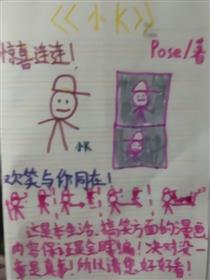 《《小K》
惊喜连连！
Pose/著
小K
欢笑与你同在！
这是本生活、搞笑方面的漫画
内容保证是全瞎编！决对没一
章是真事！所以请您好好看！